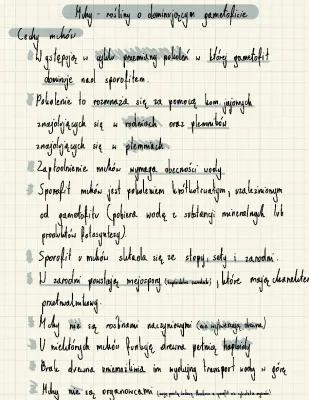 Mchy - rośliny o dominującym gametoficie
Cechy mchów
Występują w cyklu przemiany pokoleń w której gametofit
dominuje nad sporofitem.
Pokolenie to rozmnaża się za pomocą kom. jajowych
znajdujących się w rodniach oraz plemników
znajdujących się w plemniach
Zapłodnienie mchów wymaga obecności wody
Sporofit mchów jest pokoleniem krótkotrwałym, uzależnionym
od gametofitu (pobiera wodę z substancji mineralnych lub
produktów fotosyntezy).
Sporofit u mchów składa się ze stopy, sety i zarodni.
W zarodni powstają mejospory, które mają charakter
przetrwalnikowy.
Mchy nie są roślinami naczyniowymi (nie wytwarzają drewna)
U niektórych mchów funkcję drewna pełnią hydroidy
Brak drewna uniemożliwia im wydajny transport wody w górę
Mchy nie są organowcami